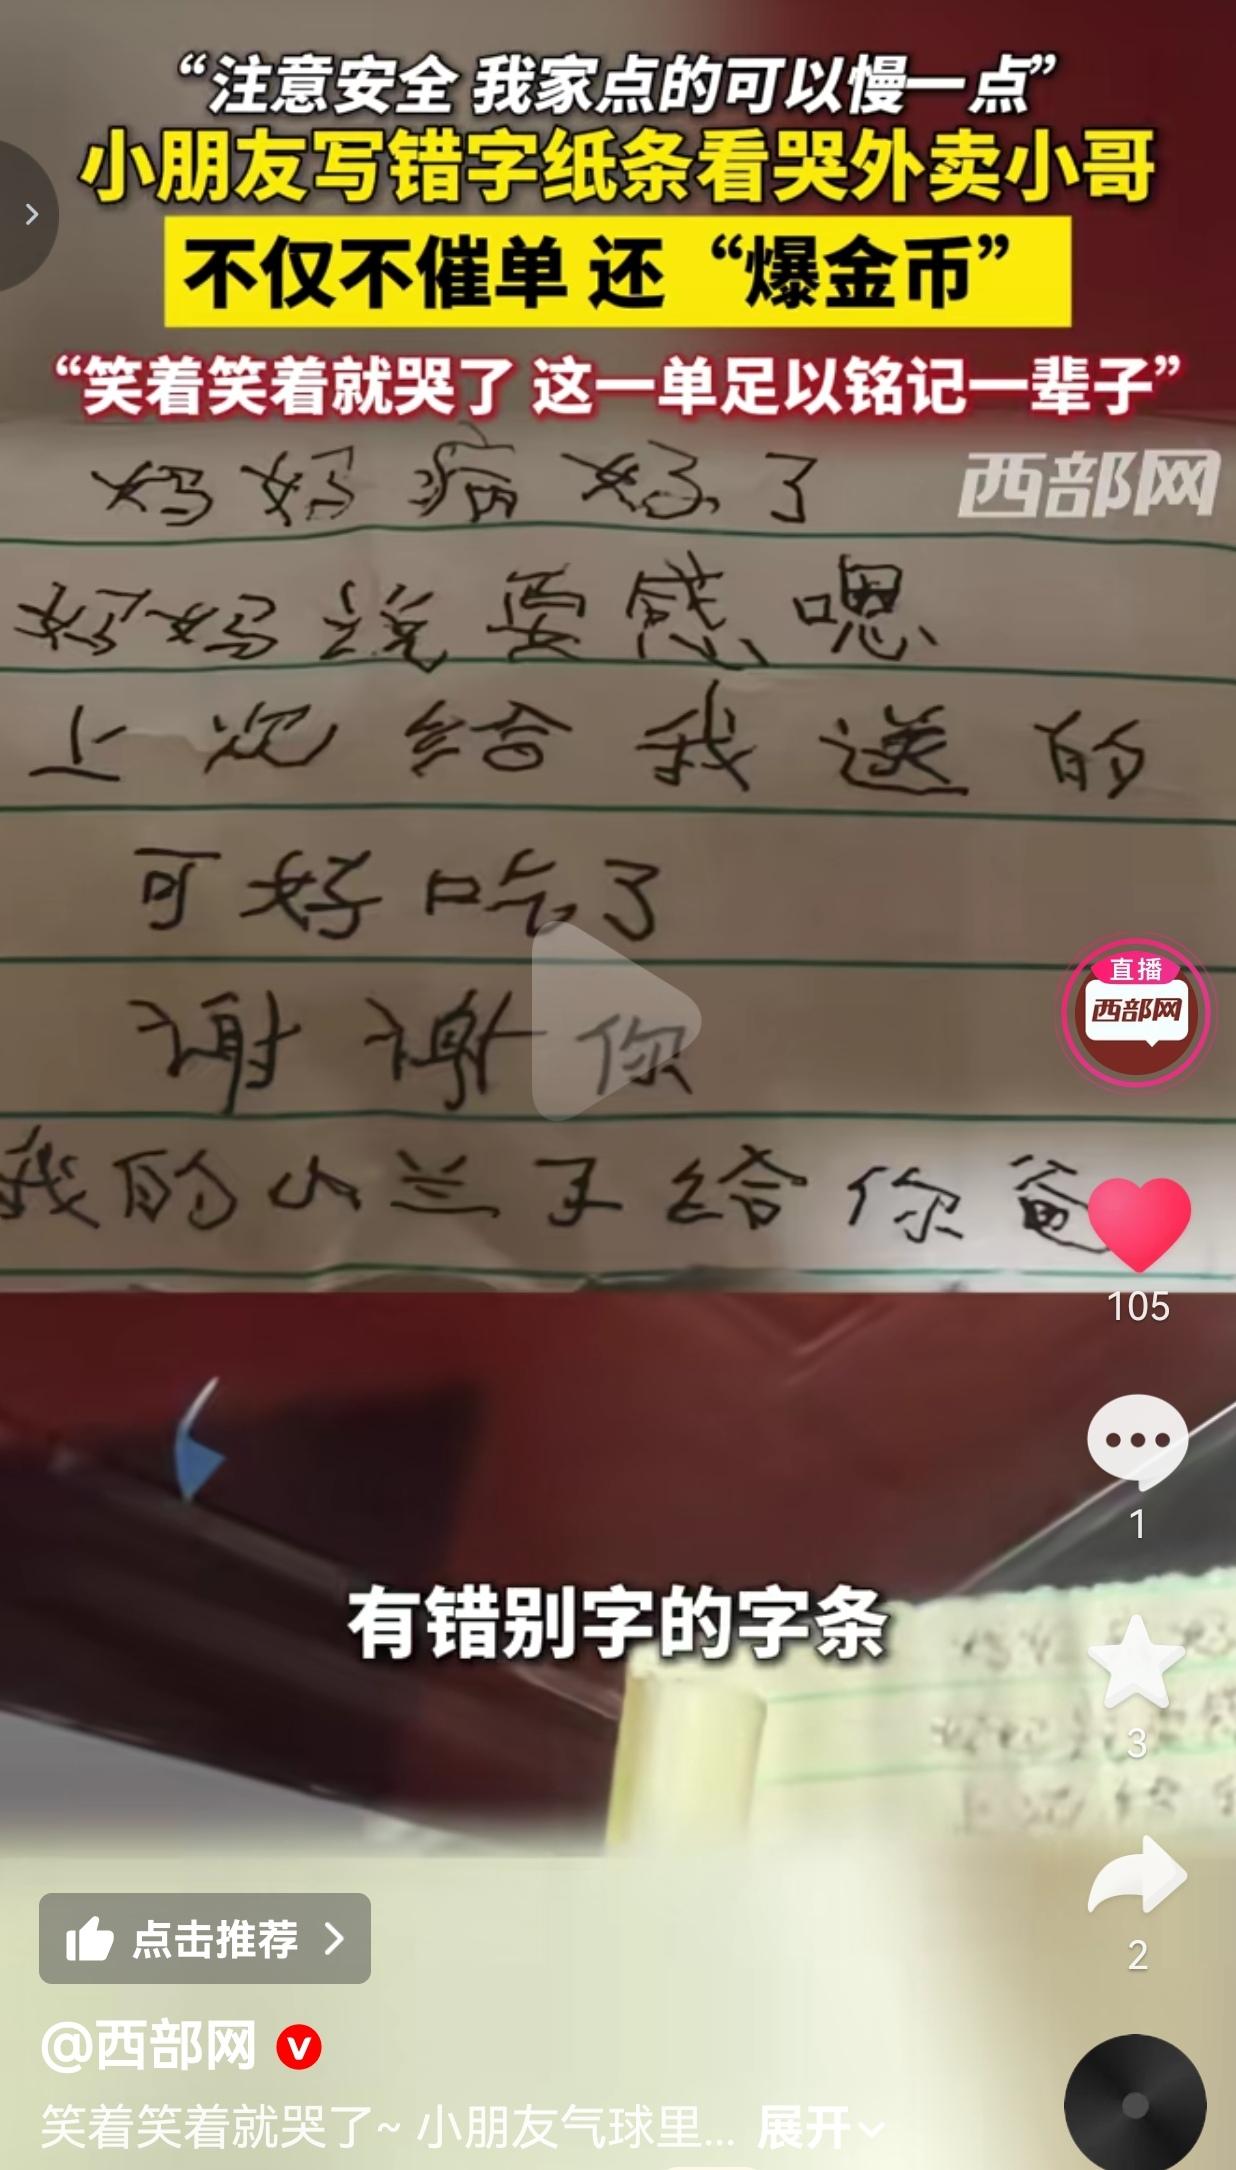 “注意安全 我家点的可以慢一点”
小朋友写错字纸条看哭外卖小哥
不仅不催单 还“爆金币”
“笑着笑着就哭了 这一单足以铭记一辈子”
西部网
妈妈病好了
妈妈说要感嗯
上次给我送的
可好吃了
谢谢你
我的山兰子给你爸
直播
西部网
105
1
有错别字的字条
3
2
点击推荐
@西部网
笑着笑着就哭了~ 小朋友气球里... 展开